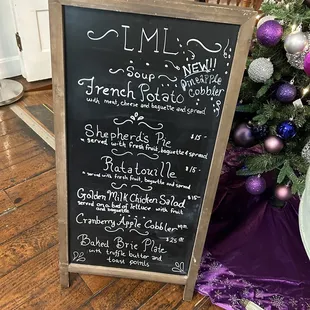 IML
NEW!!
Pineapple
Cobbler
Soup
French Potato
with meat, cheese and baguette and spread
Shepherd's Pie $15
served with fresh fruit, baguette & spread
Ratatouille $15
served with fresh fruit, baguette and spread
Golden Milk Chicken Salad $15
served on a bed of lettuce with fruit
Cranberry Apple Cobbler
Baked Brie Plate $25
with truffle butter and
toast points